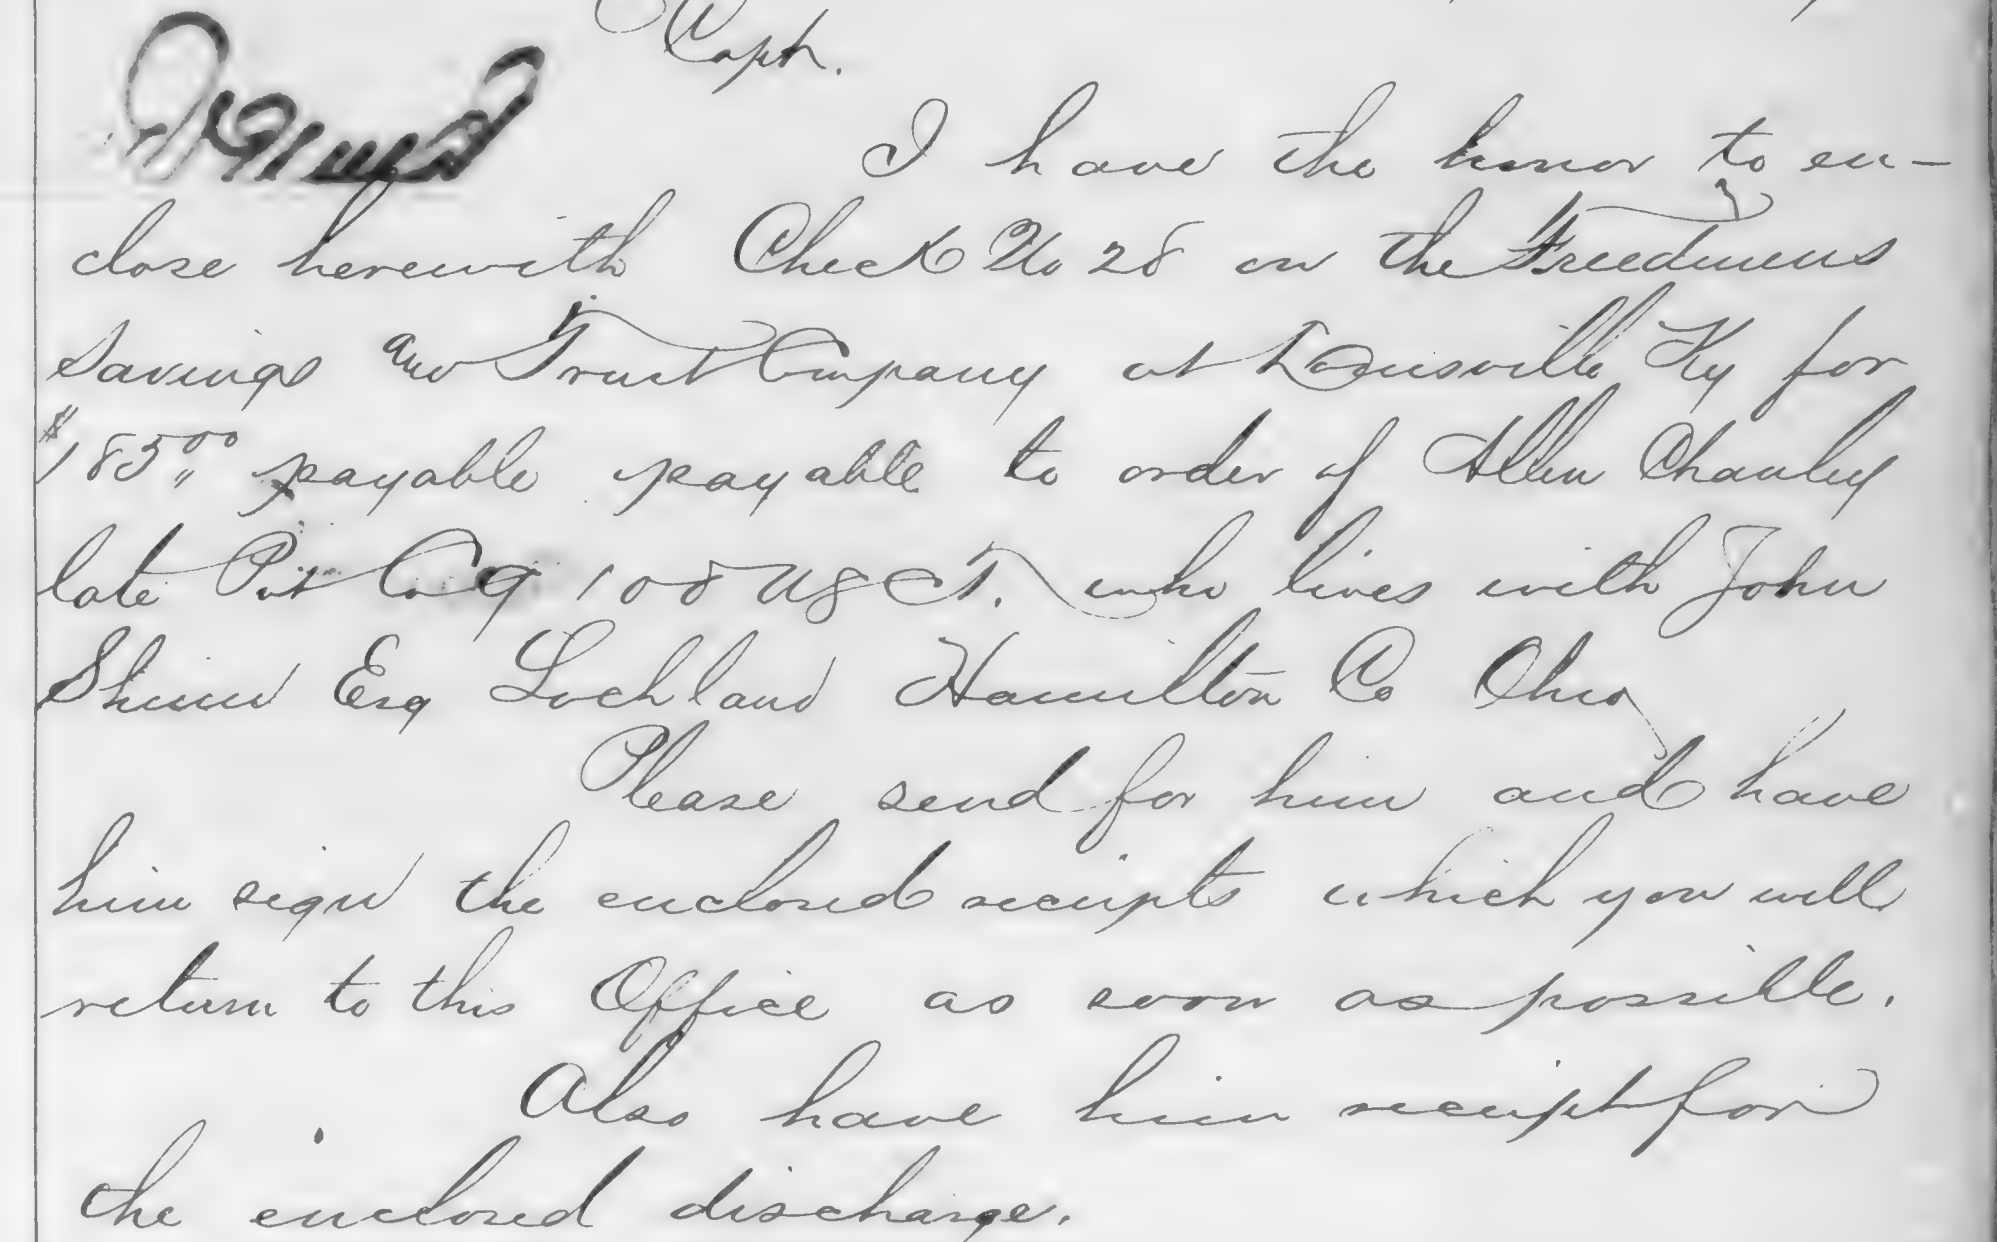 Capt.
I have the honor to en-
close herewith Check No 28 on the Freedmens
Savings and Trust Company at Louisville Ky for
$185.00 payable payable to order of Allen Chanley
late Pvt Co G 108 USCT. who lives with John
Shinn Esq Lockland Hamilton Co Ohio
Please send for him and have
him sign the enclosed receipts which you will
return to this Office as soon as possible.
Also have him receipt for
the enclosed discharge.